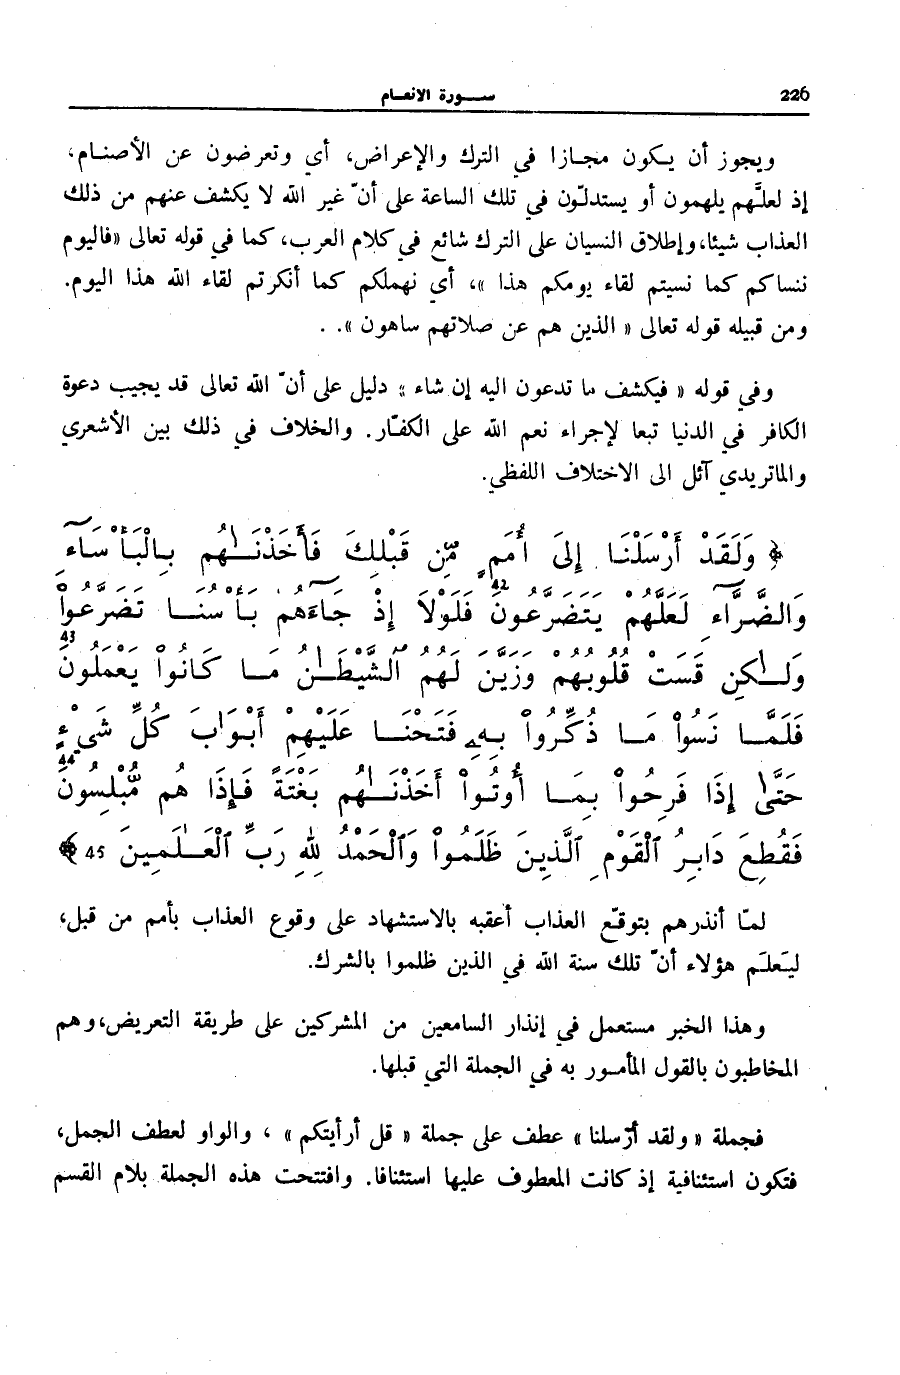 226
ســورة الانعـام
ويجوز أن يـكون مجـازا في الترك والإعراض، أي وتعرضون عن الأصنـام،
إذ لعلّهم يلهمون أو يستدلّون في تلك الساعة على أنّ غير الله لا يكشف عنهم من ذلك
العذاب شيئا، وإطلاق النسيان على الترك شائع في كلام العرب، كما في قوله تعالى «فاليوم
ننساكم كما نسيتم لقاء يومكم هذا »، أي نهملكم كما أنكرتم لقاء الله هذا اليوم.
ومن قبيله قوله تعالى « الذين هم عن صلاتهم ساهون ». .
وفي قوله « فيكشف ما تدعون اليه إن شاء » دليل على أنّ الله تعالى قد يجيب دعوة
الكافر في الدنيا تبعا لإجراء نعم الله على الكفّار. والخلاف في ذلك بين الأشعري
والماتريدي آئل الى الاختلاف اللفظي.
﴿ وَلَقَدْ أَرْسَلْنَـا إِلَىٰ أُمَمٍ مِّن قَبْلِكَ فَأَخَذْنَـٰهُم بِـالْبَأْسَـآءِ
وَالضَّرَّآءِ لَعَلَّهُمْ يَتَضَرَّعُونَ 42 فَلَوْلَا إِذْ جَآءَهُم بَـأْسُنَـا تَضَرَّعُواْ
وَلَـٰكِن قَسَتْ قُلُوبُهُمْ وَزَيَّنَ لَهُمُ ٱلشَّيْطَـٰنُ مَـا كَانُواْ يَعْمَلُونَ 43
فَلَمَّـا نَسُواْ مَـا ذُكِّرُواْ بِـهِۦ فَتَحْنَـا عَلَيْهِمْ أَبْوَابَ كُلِّ شَيْءٍ
حَتَّىٰ إِذَا فَرِحُواْ بِمَـا أُوتُواْ أَخَذْنَـٰهُم بَغْتَةً فَإِذَا هُم مُّبْلِسُونَ 44
فَقُطِعَ دَابِرُ ٱلْقَوْمِ ٱلَّذِينَ ظَلَمُواْ وَٱلْحَمْدُ لِلهِ رَبِّ ٱلْعَـٰلَمِينَ 45 ﴾
لمّـا أنذرهم بتوقّـع العذاب أعقبه بالاستشهاد على وقوع العذاب بأمم من قبل،
ليَعلَم هؤلاء أنّ تلك سنة الله في الذين ظلموا بالشرك.
وهذا الخبر مستعمل في إنذار السامعين من المشركين على طريقة التعريض، وهم
المخاطبون بالقول المأمـور به في الجملة التي قبلها.
فجملة « ولقد أرسلنا » عطف على جملة « قل أرأيتكم » ، والواو لعطف الجمل،
فتكون استئنافية إذ كانت المعطوف عليها استئنافا. وافتتحت هذه الجملة بلام القسم